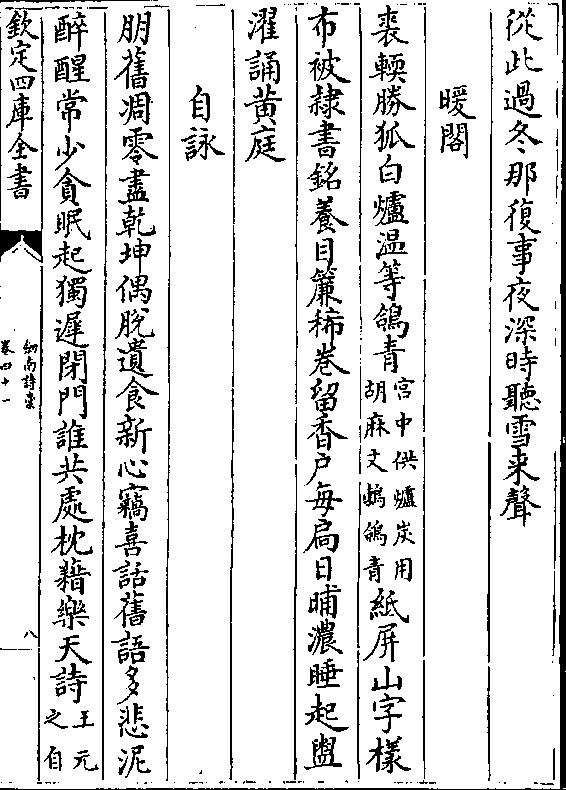 從此過冬那復事夜深時聽雪来聲
暖閣
裘輭勝狐白爐温等鴿青宫中供爐炭用胡麻文鵓鴿青紙屏山字様
布被隸書銘養目簾稀巻留香户毎扃日晡濃睡起盥
濯誦黄庭
自詠
朋舊凋零盡乾坤偶脱遺食新心竊喜話舊語多悲泥
醉醒常少貪眠起獨遲閉門誰共處枕藉樂天詩王元之自
欽定四庫全書
劍南詩藁
卷四十一
八